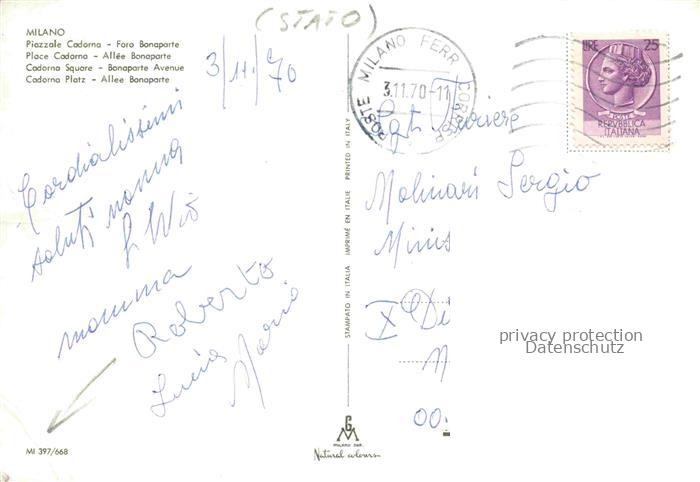 (STATO)
MILANO
Piazzale Cadorna - Foro Bonaparte
Place Cadorna - Allée Bonaparte
Cadorna Square - Bonaparte Avenue
Cadorna Platz - Allee Bonaparte
3/11/70
POSTE MILANO FERR. CORRISP.
3.11.70-11
LIRE 25
POSTE
REPVBBLICA
ITALIANA
Cordialissimi
saluti nonna
mamma
Roberto
Lucia
Mario
MI 397/668
STAMPATO IN ITALIA IMPRIMÉ EN ITALIE PRINTED IN ITALY
GM
MILANO DAR.
Natural colours
Molinari Sergio
Minis
X Di
N
00
privacy protection
Datenschutz